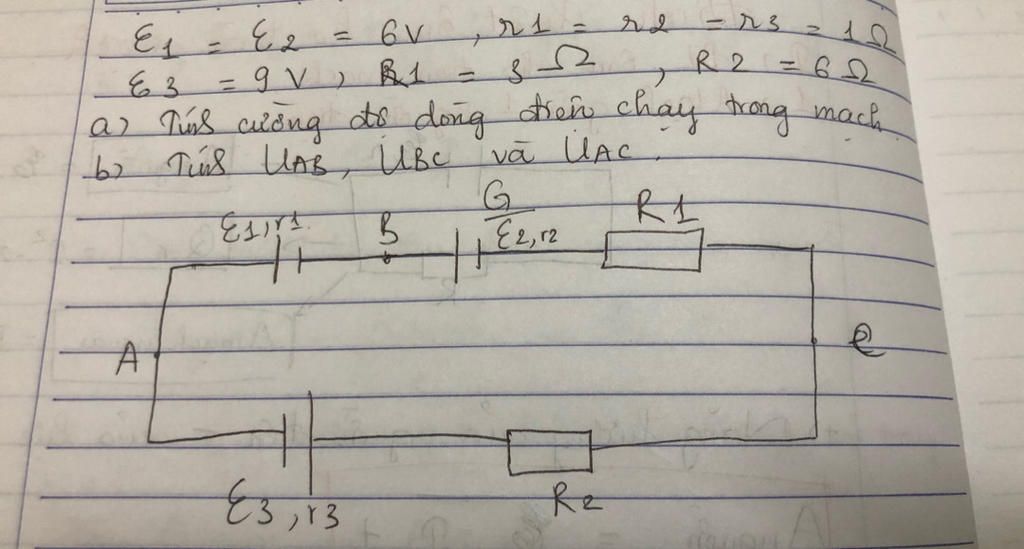 ε1 = ε2 = 6V , r1 = r2 = r3 = 1Ω
ε3 = 9V , R1 = 3Ω , R2 = 6Ω
a) Tính cường độ dòng điện chạy trong mạch.
b) Tính UAB, UBC và UAC.
G
ε1, r1. B ε2, r2 R1
A C
ε3, r3 R2